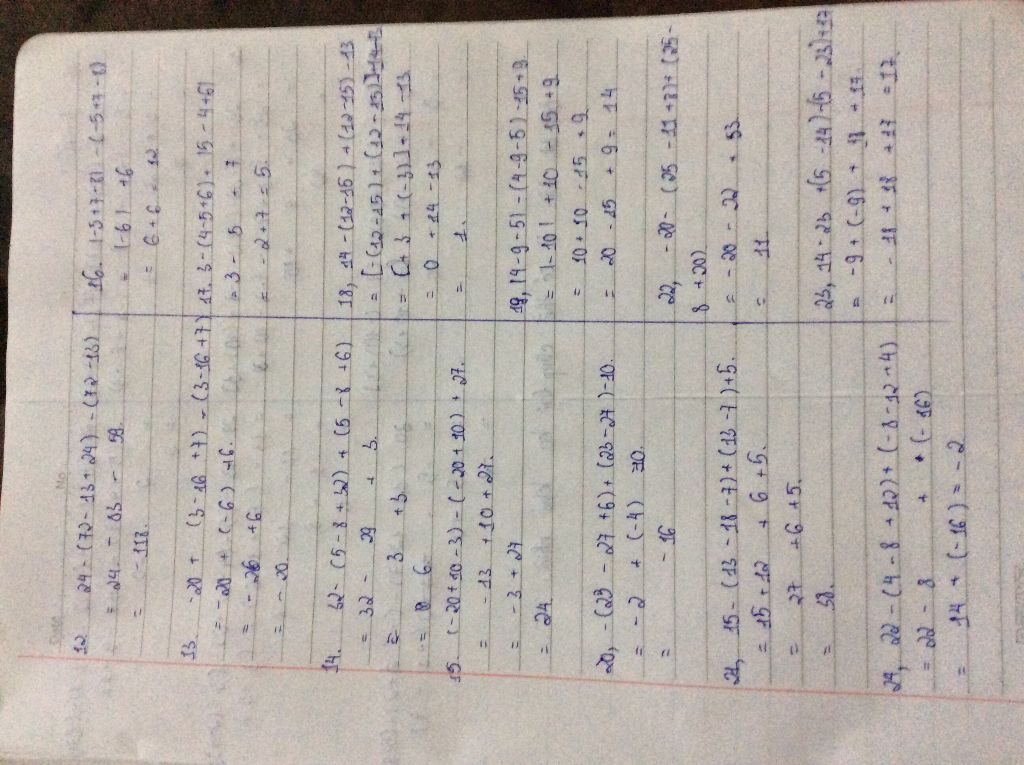 12. 24 - (72 - 13 + 24) - (72 - 13)
= 24 - 83 - 59.
= - 118.
13. - 20 + (3 - 16 + 7) - (3 - 16 + 7)
= - 20 + (- 6) + 6.
= - 26 + 6.
= - 20.
14. 32 - (5 - 8 + 32) + (5 - 8 + 6)
= 32 - 29 + 3.
= 3 + 3.
= 6.
15. (- 20 + 10 - 3) - (- 20 + 10) + 27.
= - 13 + 10 + 27.
= - 3 + 27
= 24.
20, - (23 - 27 + 6) + (23 - 27) - 10.
= - 2 + (- 4) - 10.
= - 16
21, 15 - (13 - 18 - 7) + (13 - 7) + 5.
= 15 + 12 + 6 + 5.
= 27 + 6 + 5.
= 38.
24, 22 - (4 - 8 + 12) + (- 8 - 12 + 4)
= 22 - 8 + (- 16)
= 14 + (- 16) = - 2
16. (- 5 + 7 - 8) - (- 5 + 7 - 8)
= (- 6) + 6
= 6 + 6 = 12
17. 3 - (4 - 5 + 6) + 15 - 4 + 6)
= 3 - 5 + 7
= - 2 + 7 = 5.
18, 14 - (12 - 15) + (12 - 15) - 13
= [- (12 - 15) + (12 - 15)] + 14 - 13
= [+ 3 + (- 3)] + 14 - 13
= 0 + 14 - 13
= 1.
19, (4 - 9 - 5) - (4 - 9 - 5) - 15 + 9
= |- 10| + 10 - 15 + 9
= 10 + 10 - 15 + 9
= 20 - 15 + 9 = 14
22, - 20 - (25 - 11 + 8) + (25 -
8 + 20)
= - 20 - 22 + 53.
= 11
23, 14 - 23 + (5 - 14) - (5 - 23) + 17
= - 9 + (- 9) + 18 + 17.
= - 18 + 18 + 17 = 17.